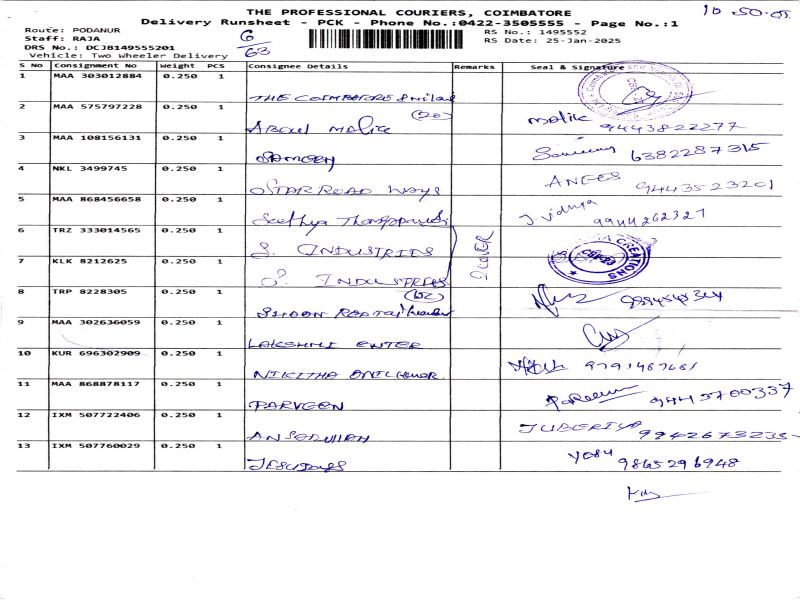 THE PROFESSIONAL COURIERS, COIMBATORE
Delivery Runsheet - PCK - Phone No.:0422-3505555 - Page No.:1
10.50
Route: PODANUR
Staff: RAJA
DRS No.: DCJB149555201
Vehicle: Two Wheeler Delivery
6/63
RS No.: 1495552
RS Date: 25-Jan-2025
S No Consignment No Weight PCS Consignee Details Remarks Seal & Signature
1 MAA 303012884 0.250 1 THE COIMBATORE
2 MAA 575797228 0.250 1 ABDUL MALIC malik 9443822277
3 MAA 108156131 0.250 1 SAMEEN 6382287315
4 NKL 3499745 0.250 1 STAR ROAD WAYS ANEES 9443523201
5 MAA 868456658 0.250 1 Seethya J vidhya 9944262327
6 TRZ 333014565 0.250 1 S. INDUSTRIES 2 COVER
7 KLK 8212625 0.250 1 S. INDUSTRIES CREATIONS
8 TRP 8228305 0.250 1
9 MAA 302636059 0.250 1 LAKSHMI ENTER
10 KUR 696302909 0.250 1 NIKITHA 9791487681
11 MAA 868878117 0.250 1 PARVEEN PaReeen 9443700337
12 IXM 507722406 0.250 1 JUBERIYA 9942673235
13 IXM 507760029 0.250 1 yesu 9865296948